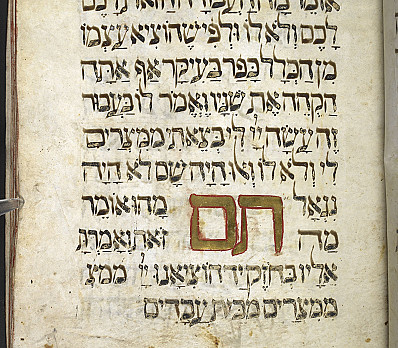 לכם ולא לו ולפי שהוציא עצמו
מן הכלל כפר בעיקר אף אתה
הקהה את שניו ואמר לו בעבור
זה עשה יי לי בצאתי ממצרים
לי ולא לו ואלו היה שם לא היה
נגאל תם מהו אומר
מה זאת ואמרת
אליו בחוזק יד הוציאנו יי ממצ
ממצרים מבית עבדים